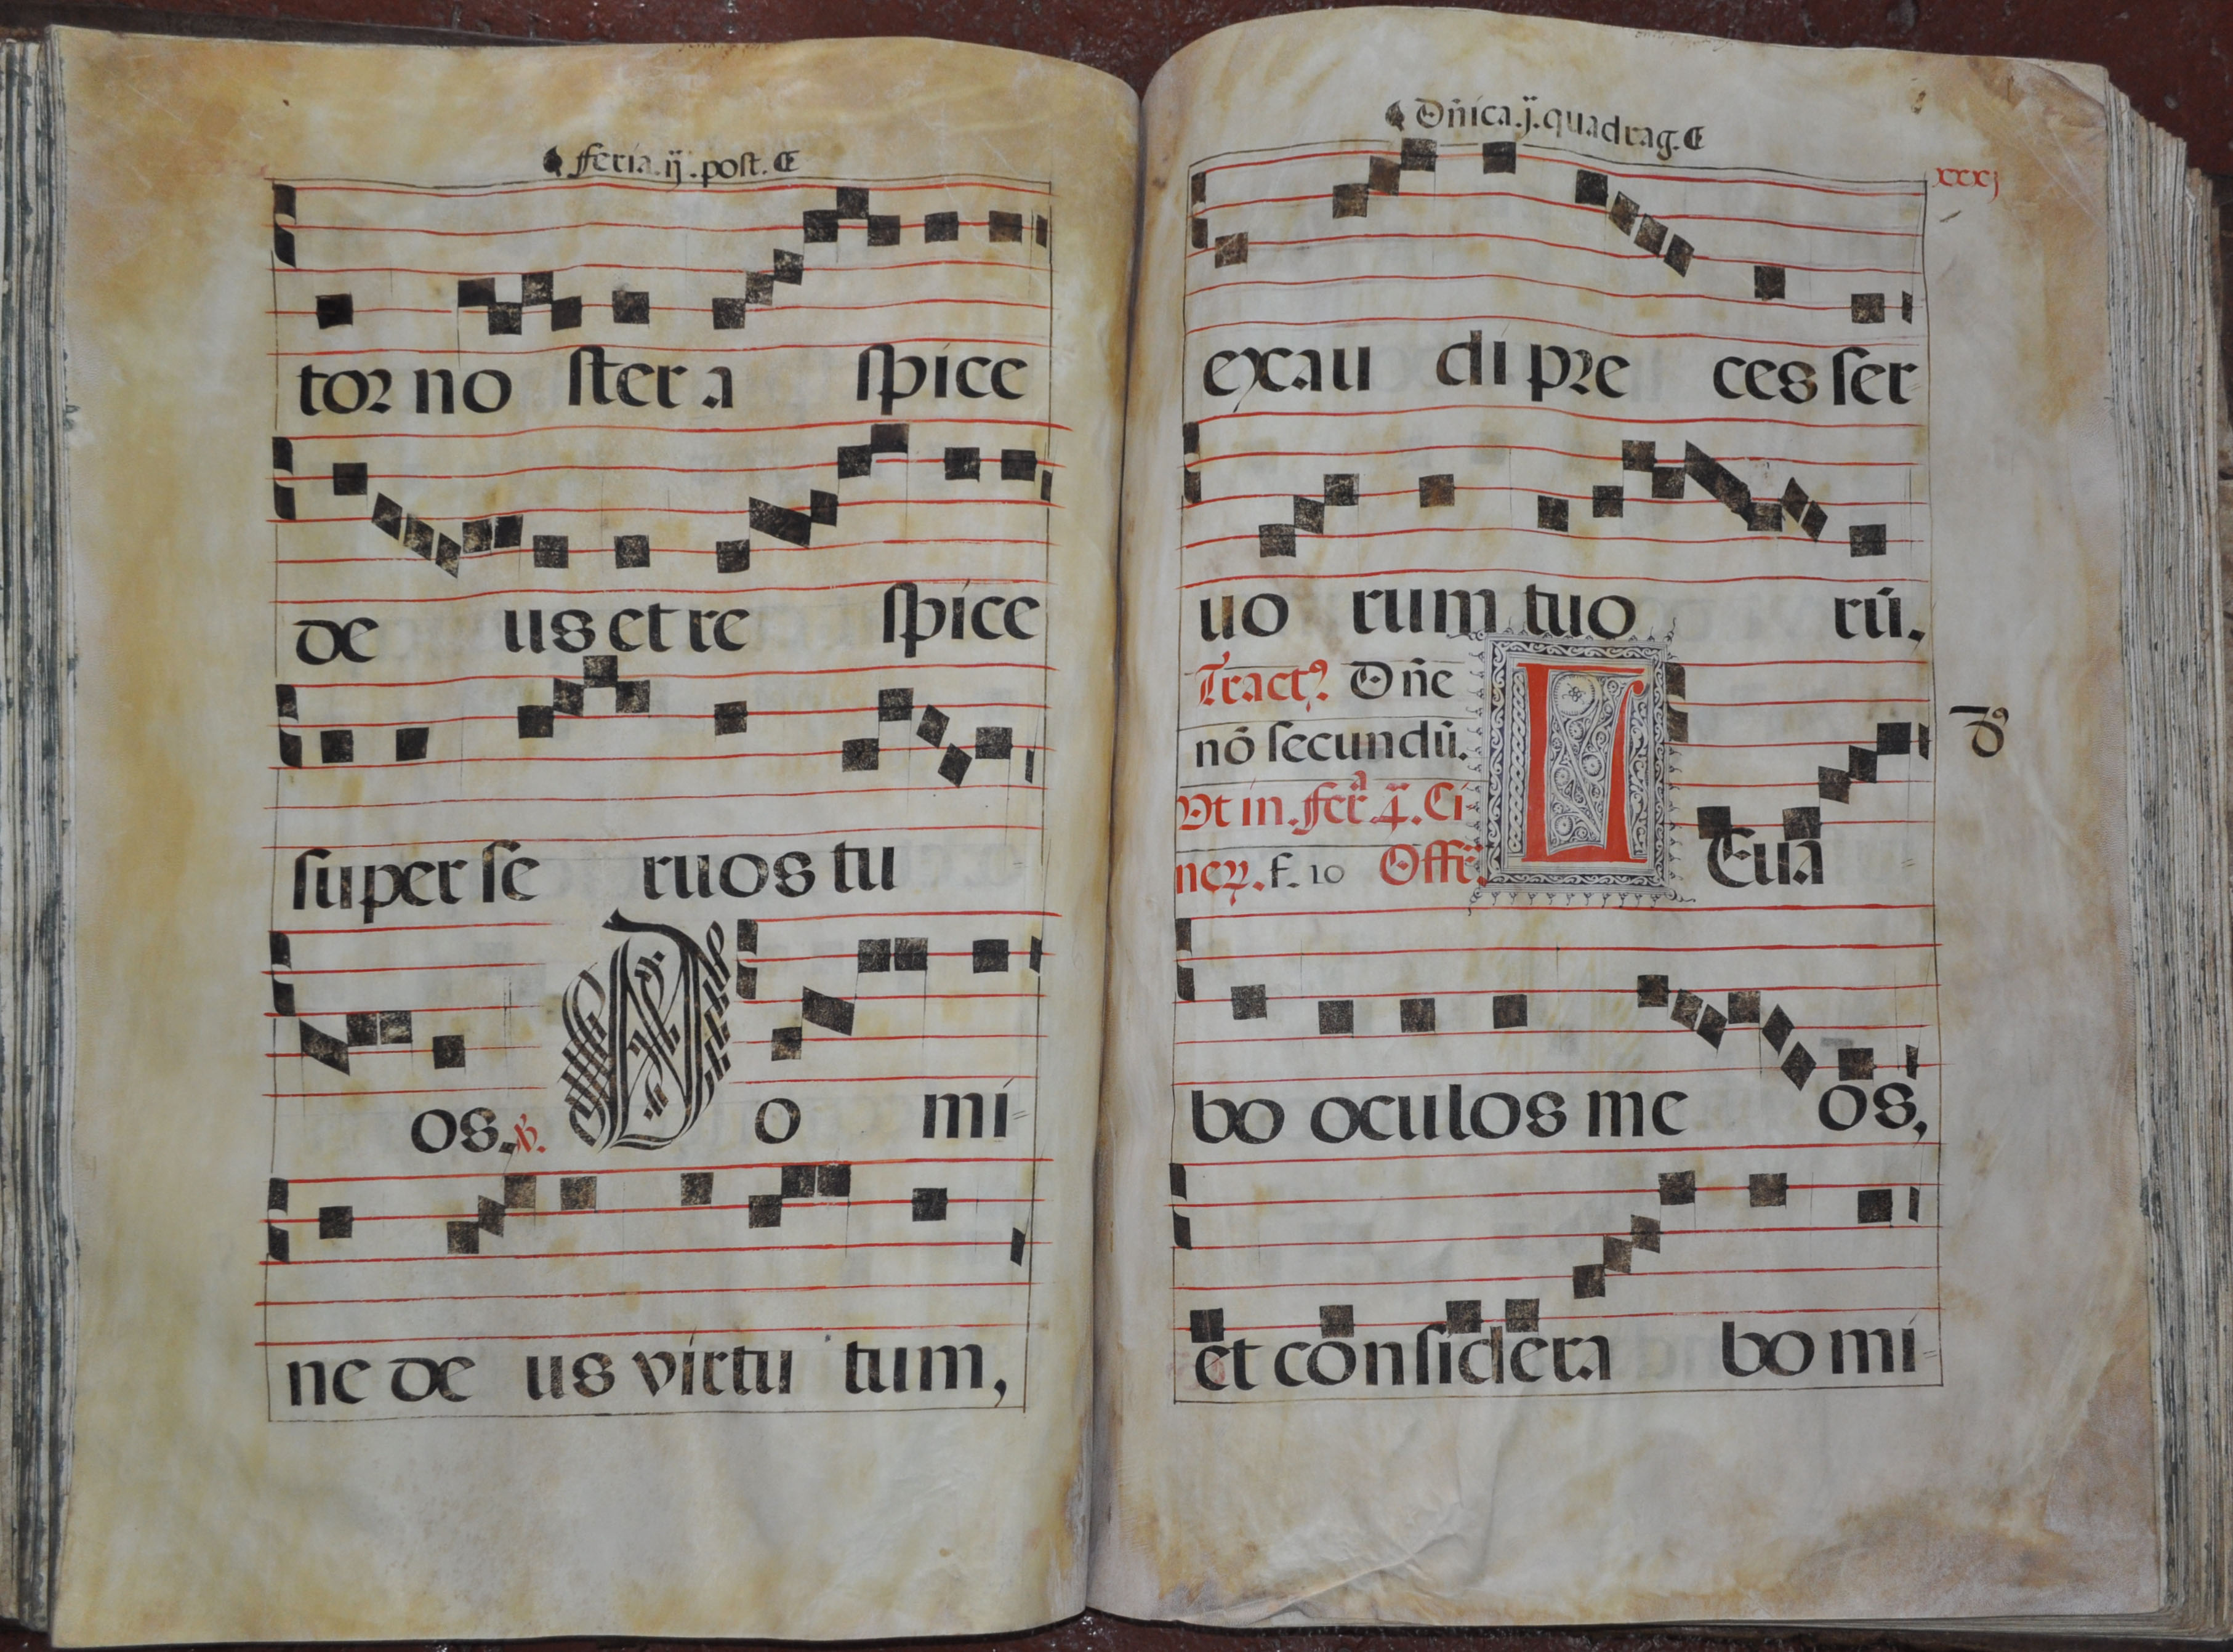 feria.ij.post.
tor no ster a spice
de us et re spice
super se ruos tu
os. ℣. Do mi-
ne de us virtu tum,
Dn̄ica.j.quadrag.
xxxj
exau di pre ces ser
uo rum tuo rū.
Tractꝰ Dn̄e
nō secundū.
Vt in.fer̄.4ª.Ci
neꝝ.f.10 Offr̄.
LEua-
bo oculos me os,
et considera bo mi-